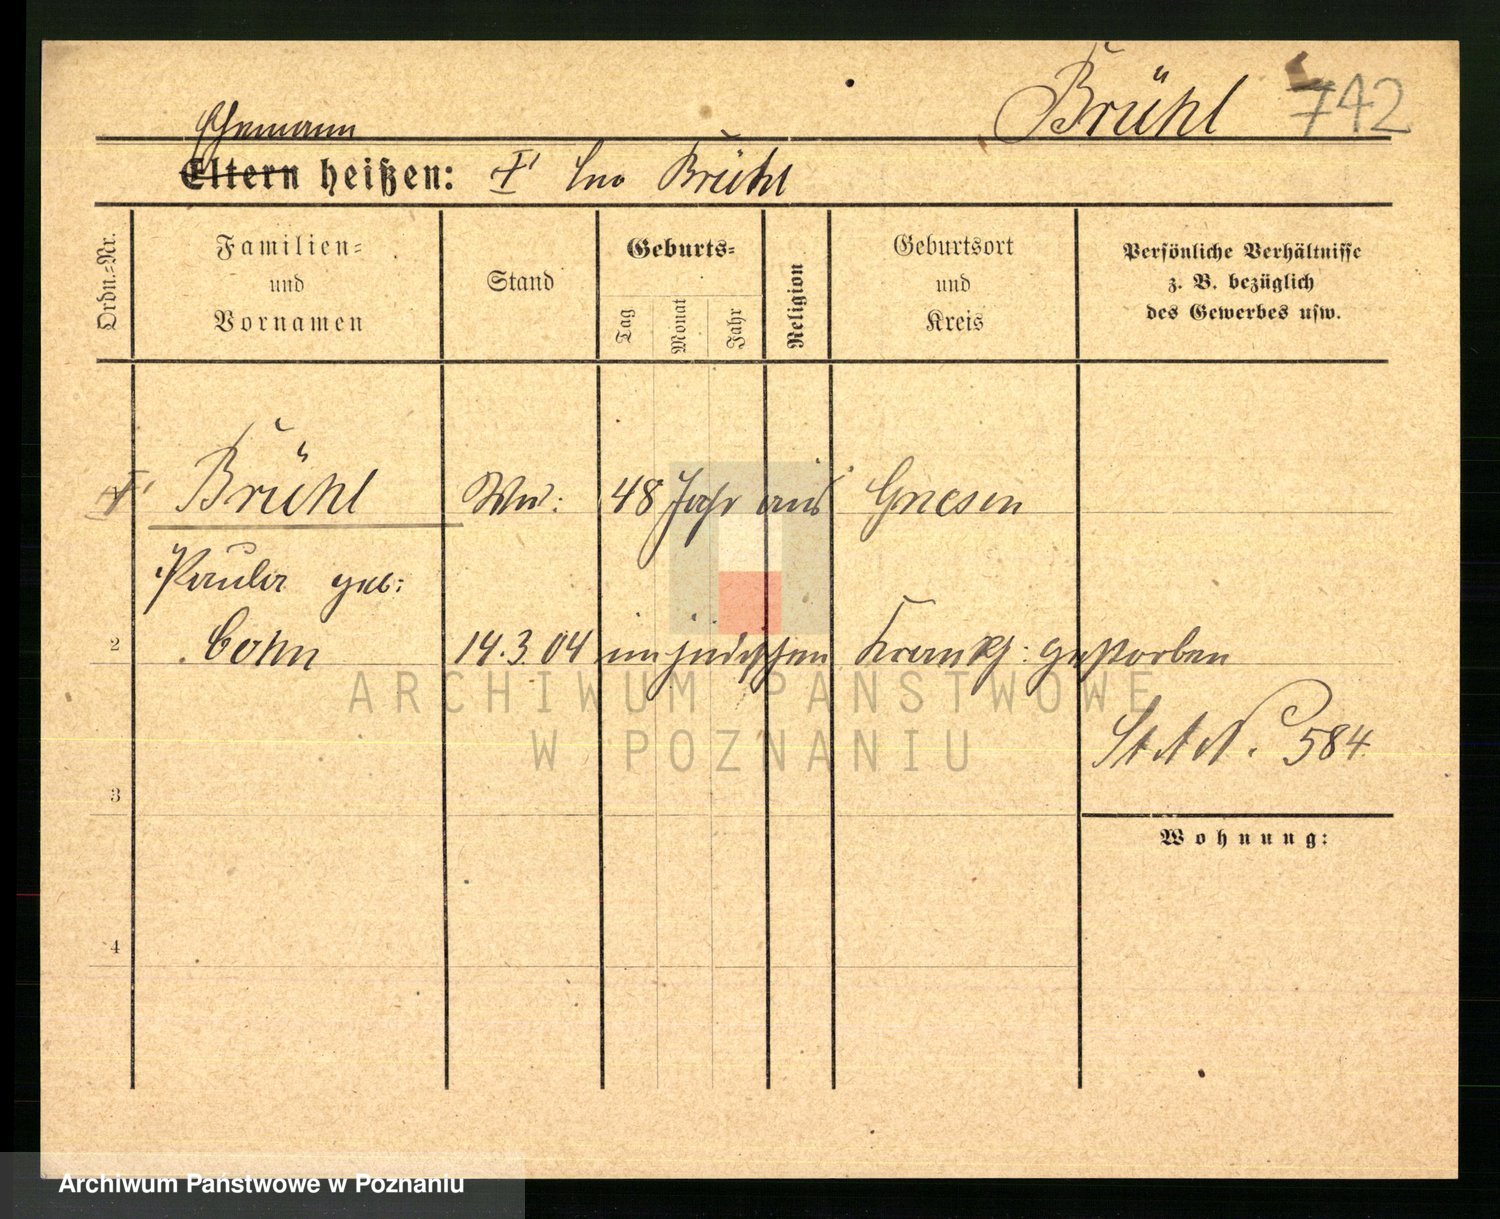 Brühl 742
Ehemann
Eltern heißen: † Leo Brühl
Ordn.-Nr.
Familien-
und
Vornamen
Stand
Geburts-
Tag
Monat
Jahr
Religion
Geburtsort
und
Kreis
Persönliche Verhältnisse
z. B. bezüglich
des Gewerbes usw.
† Brühl Ww: 48 Jahr aus Gnesen
Paula geb:
2 Cohn 14.3.04 im jüdischen Krankh: gestorben
ARCHIWUM PAŃSTWOWE
St A N. 584
W POZNANIU
3
Wohnung:
4
Archiwum Państwowe w Poznaniu